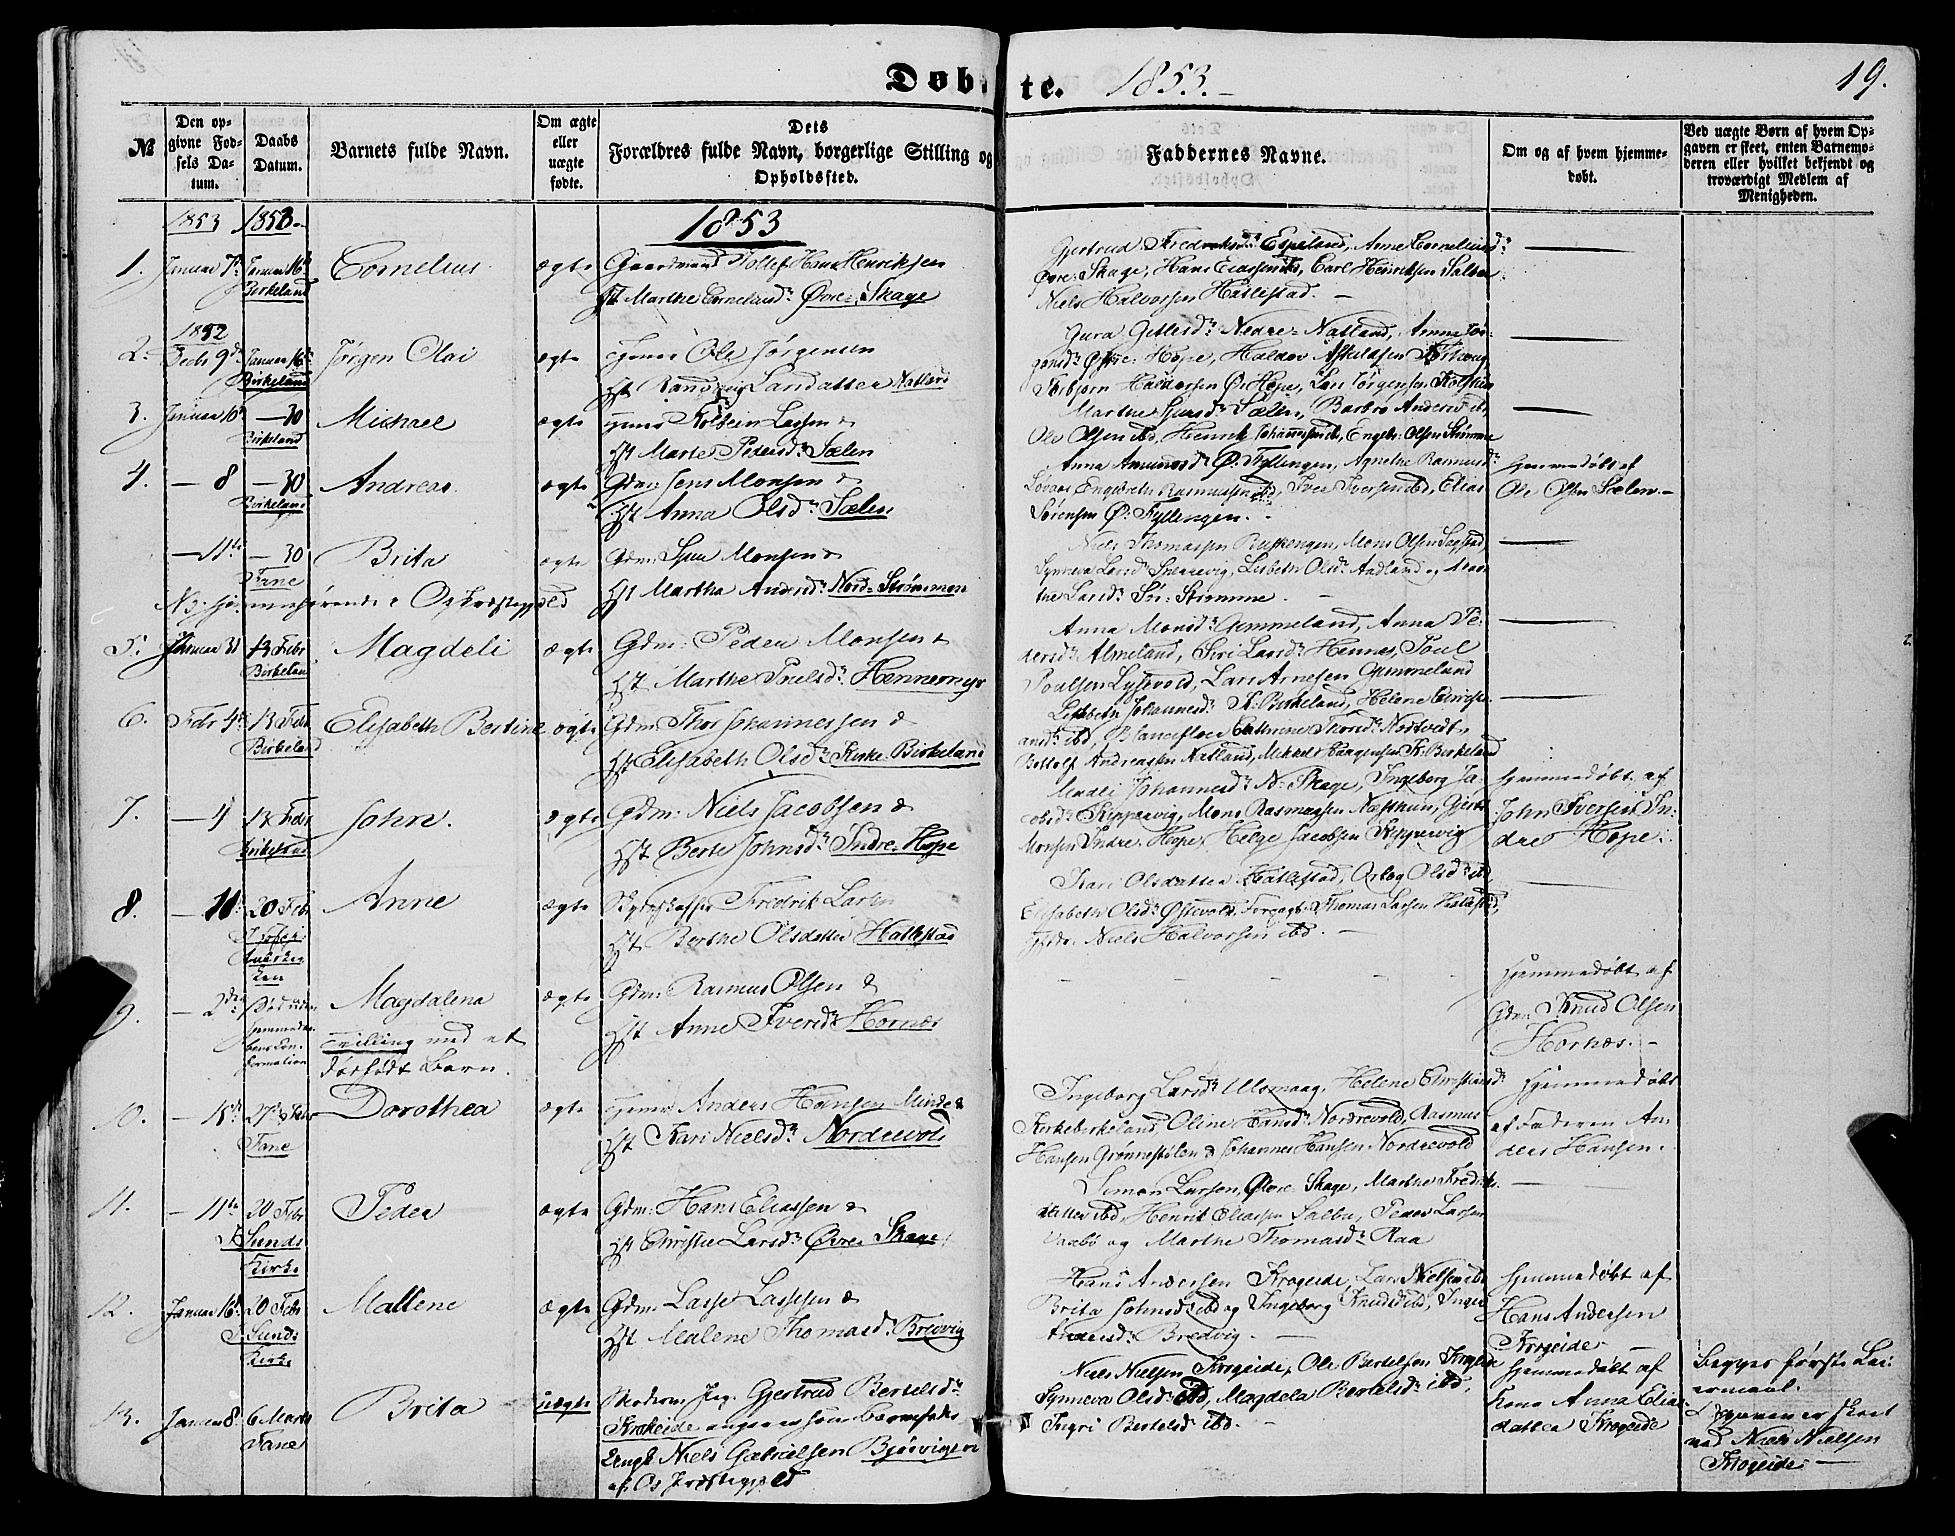 Døbte. 1853.
19.
№
Den opgivne Fødsels Datum.
Daabs Datum.
Barnets fulde Navn.
Om ægte eller uægte fødte.
Dets Forældres fulde Navn, borgerlige Stilling og Opholdssted.
Faddernes Navne.
Om og af hvem hjemmedøbt.
Ved uægte Børn af hvem Opgaven er skeet, enten Barnemoderen eller hvilket bekjendt og troværdigt Medlem af Menigheden.
1853 1853
1853
1. Januar 7de Januar 16de Birkeland
Cornelius
ægte
Gaardmand Tollef Hans Henriksen
Hst Marthe Corneliusdr Øvre-Skage
Gjertrud Fredriksdr Espeland, Anne Corneliusdr
Øvre-Skage, Hans Eliassen ibd, Carl Henriksen Salbu
Niels Halvorssen Hatlestad.
1852
2. Febr 9de Januar 16de Birkeland
Jørgen Olai
ægte
Ole Jørgensen
Hst Larsdatter Natland
Gura Gitlesdr Nedre-Natland, Anna Jør-
gensdr Øvre-Hope, Haldor
Haldorsen Ø. Hope, Lars Jørgensen
3. Januar 10de — 30 Birkeland
Michael
ægte
Lassen &
Hst Marte Pedersd. Sælen
Marthe Sjursdr Sælen, Barbro Andersd ibd
Ole Olsen ibd, Henrik Johannessen ibd, Engebr. Olsen Strømme
4. — 8 — 30 Birkeland
Andreas
ægte
Gdm: Jens Monsen &
Hst Anna Olsdr Sælen
Anna Amundsdr Ø. Fyllingen, Agnethe Rasmusdr
Løvaas Engebreth Rasmussen ibd, Iver Iversen ibd, Elias
Sørensen Ø. Fyllingen.
Hjemmedøbt af
Ole Olsen Sælen
— 11te — 30 Fane
Brita
ægte
Gdm: Monsen &
Hst Martha Andersdr Nord-Strømmen
NB. hjemmehørende i Os Præstegjeld
Niels Thomassen, Mons Olsen
Synneva Larsd., Lisbeth Olsdr Aadland og Mar-
the Larsdr Strømme.
5. Januar 31 13 Febr Birkeland
Magdeli
ægte
Gdm: Peder Monsen &
Hst Marthe Poulsdr Hennernes
Anna Monsdr Gammeland, Anna Pe-
dersdr Almeland, Siri Larsdr Hennes, Poul
Poulsen Lysevold, Lars Arnesen Gammeland
6. Febr 4de 13 Febr Birkeland
Elisabeth Bertine
ægte
Gdm: Thor Johannessen &
Hst Elisabeth Olsdr Kirke-Birkeland
Lisbeth Johannesdr K. Birkeland, Helene
ibd, Cathrine Thorsdr Nordtvedt,
Botolf Andreassen Natland, Mikkel K. Birkeland
7. — 4 13 Febr Birkeland
John.
ægte
Gdm: Niels Jacobsen &
Hst Berte Johnsdr Indre-Hope
Madli Johannesdr N. Skage, Ingeborg Ja-
cobsdr Skippervig, Mons Rasmussen Næsthun,
Monsen Indre-Hope, Helge Jacobsen Skippervig
Hjemmedøbt af
John Iversen In-
dre Hope.
8. — 10. 20 Febr
Anne
ægte
Fredrik Larsen
Hst Berthe Olsdatter Hatlestad
Kari Olsdatter Hatlestad, Olsdr ibd,
Elisabeth Olsdr Østevold, Thomas Larsen Hatlestad,
Niels Halvorssen ibd.
9. — 2den
Magdalena
Tvilling med et
dødfødt Barn.
ægte
Gdm: Rasmus Olsen &
Hst Anne Iversdr Hornæs
Hjemmedøbt af
Gdm: Knud Olsen
Hornæs.
10. — 18de 27de Febr Fane
Dorothea
ægte
Anders Hansen Minde &
Hst Kari Nielsdr Nordrevold
Ingeborg Larsdr Ulsmaag, Helene Christiansdr
Kirkebirkeland, Oline Hansdr Nordrevold, Rasmus
Hansen Grønnestølen & Johannes Hansen Nordrevold
Hjemmedøbt
af Faderen An-
ders Hansen.
11. — 11te 20 Febr I Sunds Kirke
Peder
ægte
Gdm: Hans Eliassen &
Hst Christie Larsdr Øvre-Skage
Simon Larsen, Øvre Skage, Marthe Fredriks-
datter ibd, Henrik Eliassen Salbu, Peder Larsen
og Marthe Thomasdr Raa
12. Januar 16de 20 Febr I Sunds Kirke
Mallene
ægte
Gdm: Lasse Lassesen &
Hst Malene Thomasdr Bredvig
Hans Andersen Krogeide, Lars Nielsen ibd
Brita Johnsdr ibd og Ingeborg Knudsd ibd, Inger
Andersdr Bredvig.
Hjemmedøbt af
Hans Andersen
Krogeide
13. Januar 8. 6 Marts Fane
Brita
uægte
Moderen Pig. Gjertrud Bertelsdr
Krokeide angiver som Barnefader
Ungk Niels Gabrielsen Bjørvigen
af Os Præstegjeld
Niels Nielsen Krogeide, Ole Bertelsen Krogeide
Synneva Olsdr ibd, Magdela Bertelsdr ibd,
Ingri Bertelsd ibd.
Hjemmedøbt af
Kone Anna Elias-
datter Krogeide
Begges første Lei-
ermaal.
Opgaven er skeet
ved Niels Nielsen
Krogeide